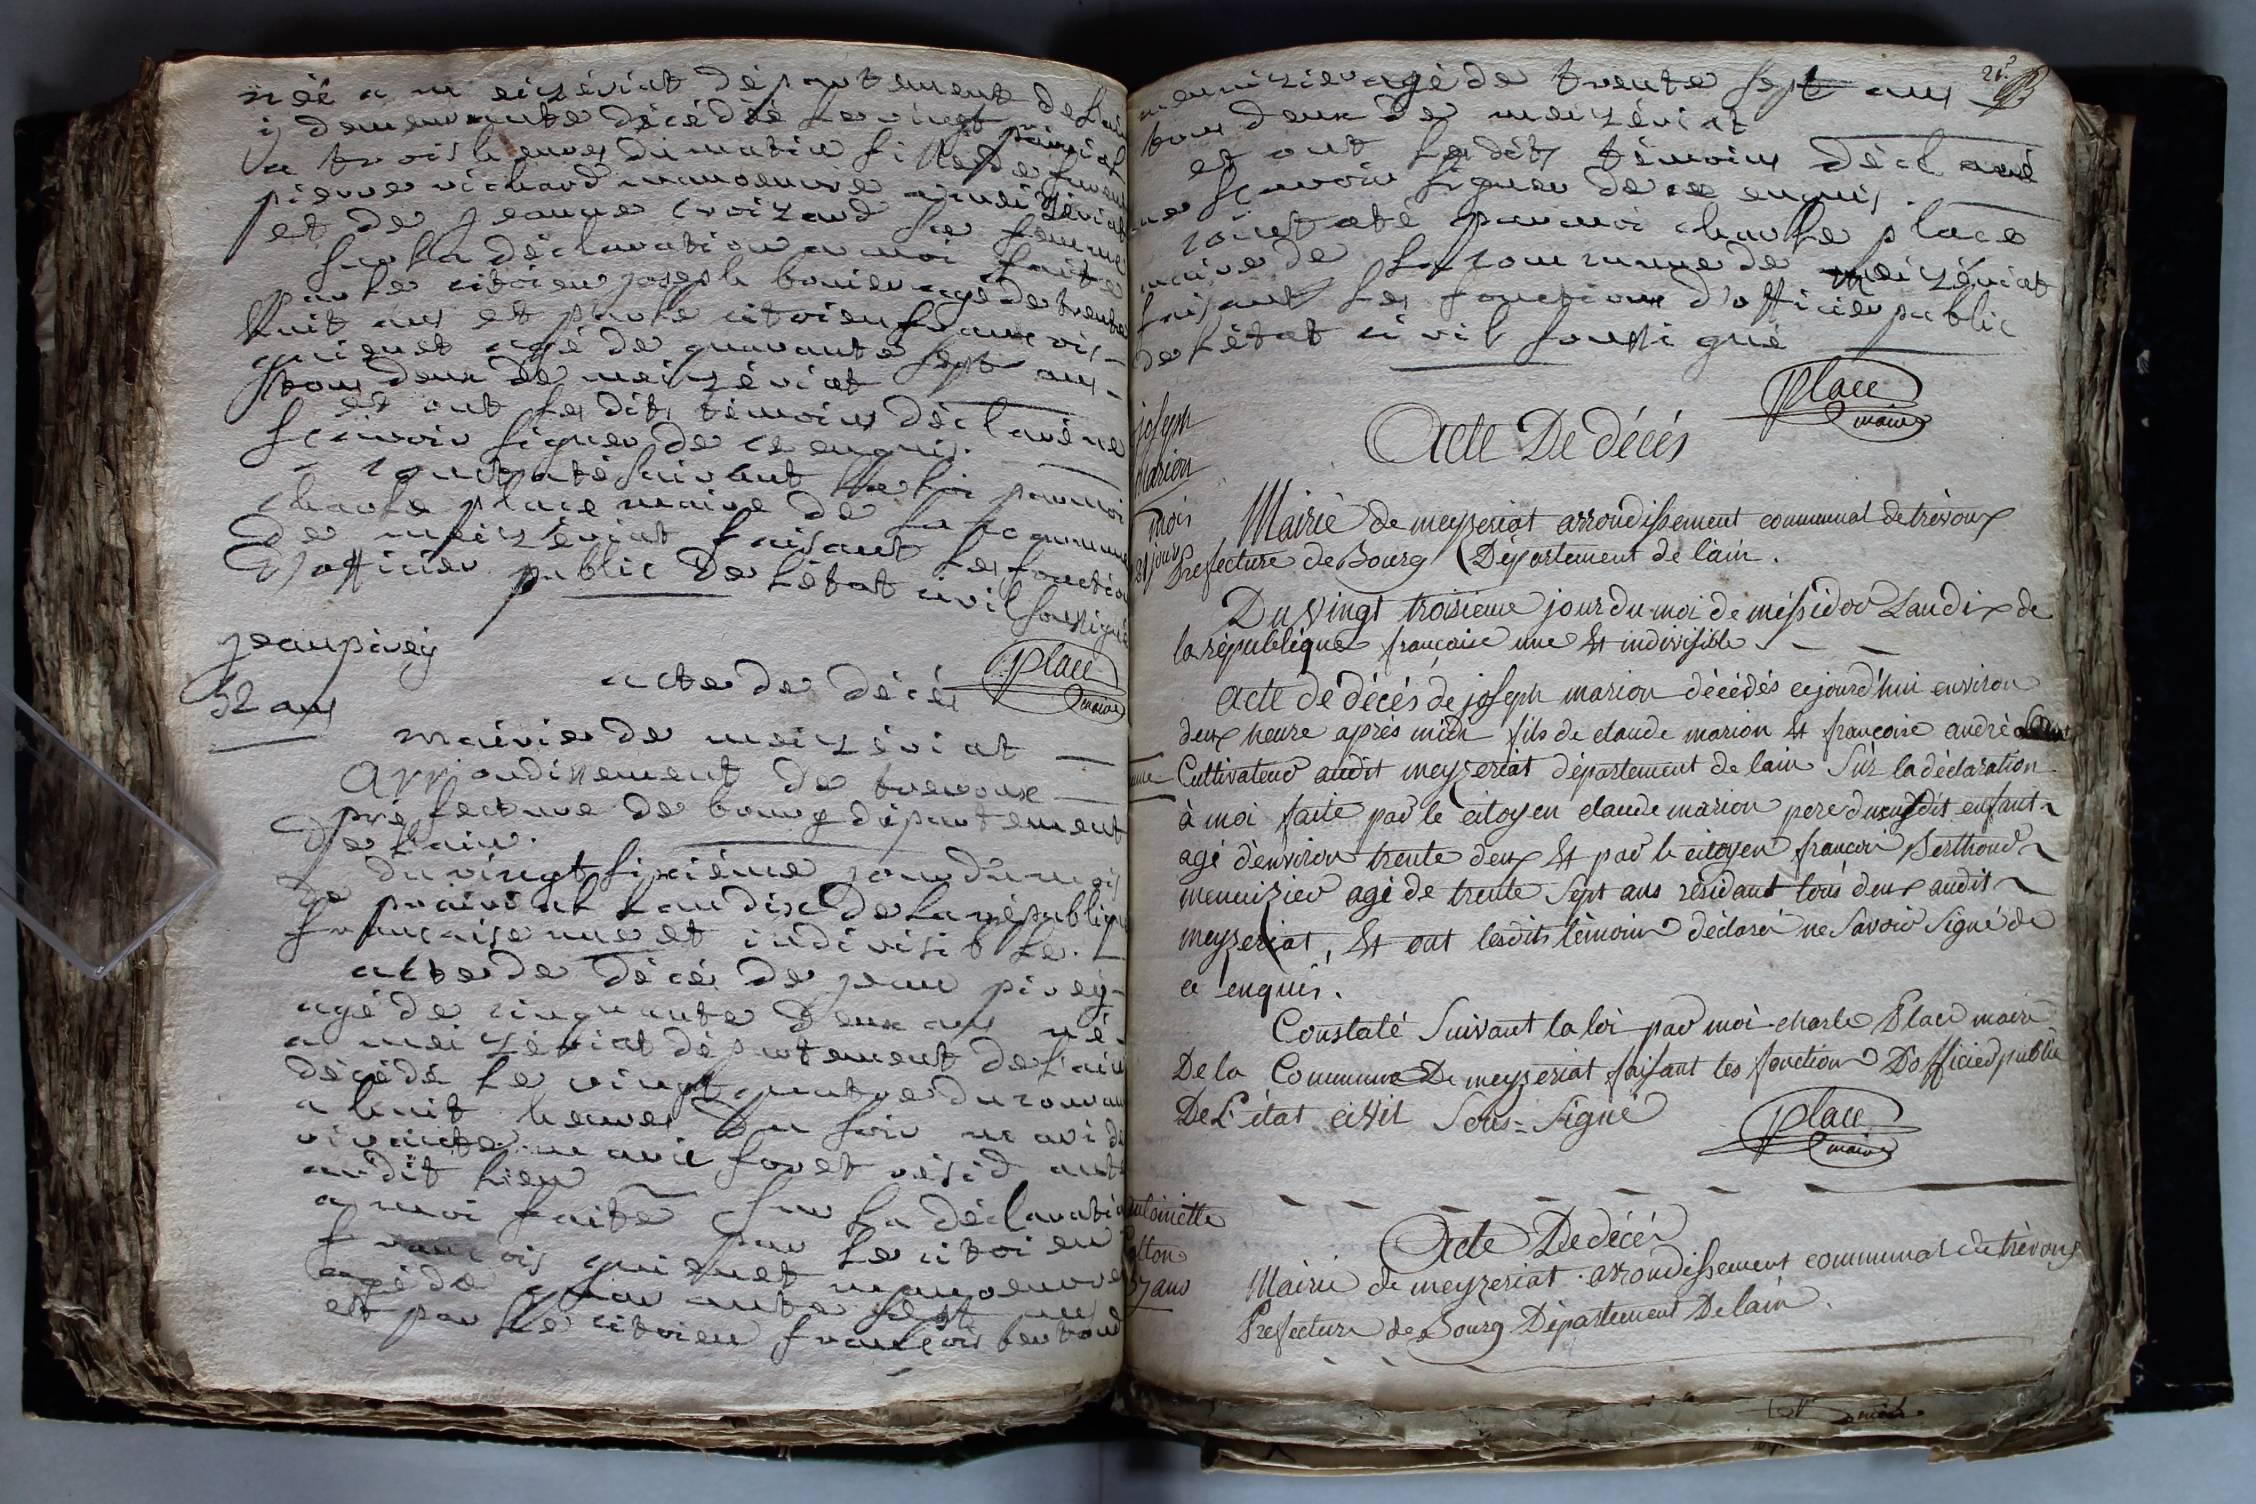 née a meizériat département de l'ain
y demeurante décédéé le vingt prairial
a trois heures du matin fille de
pierre richard manoeuvre a meizériat
et de jeanne croizard sa femme
sur la déclaration a moi faite
par le citoien joseph bouier agé de trente
huit ans et par le citoien francois
guiguet agé de quarante sept ans
tous deux de meizériat
et ont les dits témoins déclaré ne
scavoir signer de ce enquis.
constaté suivant la loi par moi
charle place maire de la commune
de meizériat faisant les fonction
d'officier public de l'état civil soussigné
Place
maire
jean pivey
52 ans
acte de décés
mairie de meizériat
arrondissement de trevoux
préfecture de bourg département
de l'ain.
du vingt sixiéme jour du mois
de prairial l'an dix de la républiqu
francaise une et indivisible.
acte de décés de jean pivey
agé de cinquante deux ans né
a meizériat département de l'ain
décédé le vingt quatre du courant
a huit heures du soir mari de
vivante marie foret résidante
au dit lieu sur la déclaratio
a moi faite par le citoien
francois guiguet manoeuvre
agé de quarante sept ans
et par le citoien francois bertoud
21.e
menuizier agé de trente sept ans
tous deux de meizériat
et ont les dits témoins déclaré
ne scavoir signer de ce enquis.
constaté par moi charle place
maire de la commune de meizériat
faisant les fonctions d'officier public
de l'état civil soussigné
Place
maire
joseph
marion
mois
jour
Acte De décés
Mairie de meyzeriat arrondissement communal de trévoux
Prefecture de Bourg Département de l'ain.
Du vingt troisieme jour du moi de méssidor Lan dix de
la républiqué francaise une Et indivisible
Acte de décés de joseph marion décédés cejourd'hui environ
deux heure aprés midi fils de claude marion Et francoise andré
Cultivateur audit meyzeriat département de lain Sur la déclaration
à moi faite par le citoyen claude marion pere dususdit enfant
agé d'environ trente deux Et par le citoyen francois Berthoud
menuizier agé de trente Sept ans résidant tous deux audit
meyzeriat, Et ont lesdits témoins déclaré ne Savoir Signé de
ce enquis.
Constaté Suivant la loi par moi charle Place maire
De la Commune De meyzeriat faisant les fonction D'officier public
De L'état civil Sous-Signé
Place
maire
antoinette
37 ans
Acte De décés
Mairie de meyzeriat arrondissement communal de trévoux
Prefecture de Bourg Département De lain.